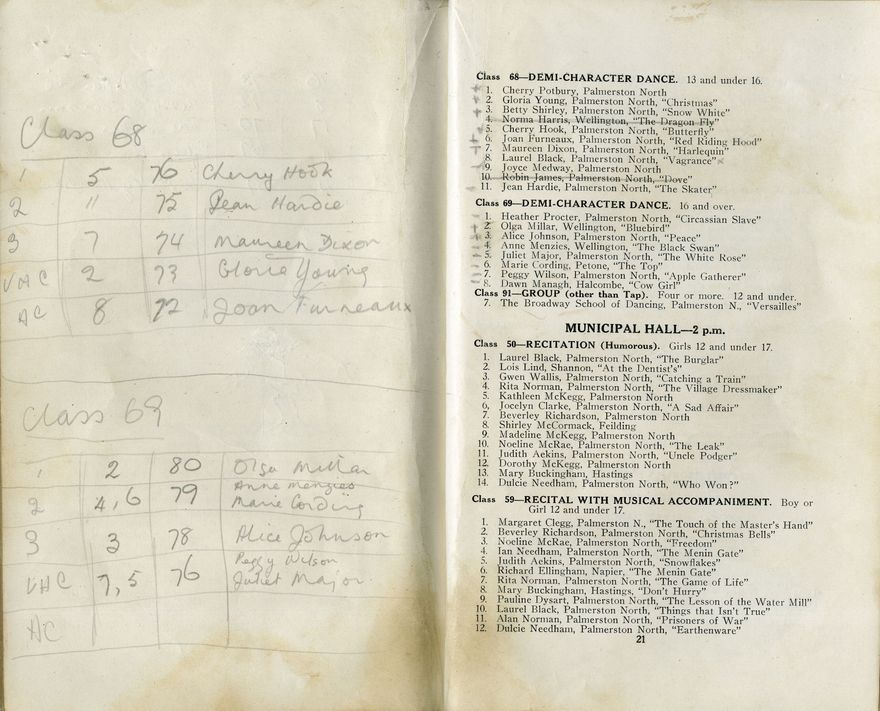 Class 68
1 5 76 Cherry Hook
2 11 75 Jean Hardie
3 7 74 Maureen Dixon
VHC 2 73 Gloria Young
AC 8 72 Joan Furneaux
Class 69
1 2 80 Olga Millar
2 4,6 79 Anne Menzies
Marie Cording
3 3 78 Alice Johnson
VHC 7,5 76 Peggy Wilson
Juliet Major
AC
Class 68—DEMI-CHARACTER DANCE. 13 and under 16.
1. Cherry Potbury, Palmerston North
2. Gloria Young, Palmerston North, "Christmas"
3. Betty Shirley, Palmerston North, "Snow White"
4. Norma Harris, Wellington, "The Dragon Fly"
5. Cherry Hook, Palmerston North, "Butterfly"
6. Joan Furneaux, Palmerston North, "Red Riding Hood"
7. Maureen Dixon, Palmerston North, "Harlequin"
8. Laurel Black, Palmerston North, "Vagrance"
9. Joyce Medway, Palmerston North
10. Robin James, Palmerston North, "Dove"
11. Jean Hardie, Palmerston North, "The Skater"
Class 69—DEMI-CHARACTER DANCE. 16 and over.
1. Heather Procter, Palmerston North, "Circassian Slave"
2. Olga Millar, Wellington, "Bluebird"
3. Alice Johnson, Palmerston North, "Peace"
4. Anne Menzies, Wellington, "The Black Swan"
5. Juliet Major, Palmerston North, "The White Rose"
6. Marie Cording, Petone, "The Top"
7. Peggy Wilson, Palmerston North, "Apple Gatherer"
8. Dawn Managh, Halcombe, "Cow Girl"
Class 91—GROUP (other than Tap). Four or more. 12 and under.
7. The Broadway School of Dancing, Palmerston N., "Versailles"
MUNICIPAL HALL—2 p.m.
Class 50—RECITATION (Humorous). Girls 12 and under 17.
1. Laurel Black, Palmerston North, "The Burglar"
2. Lois Lind, Shannon, "At the Dentist's"
3. Gwen Wallis, Palmerston North, "Catching a Train"
4. Rita Norman, Palmerston North, "The Village Dressmaker"
5. Kathleen McKegg, Palmerston North
6, Jocelyn Clarke, Palmerston North, "A Sad Affair"
7. Beverley Richardson, Palmerston North
8. Shirley McCormack, Feilding
9. Madeline McKegg, Palmerston North
10. Noeline McRae, Palmerston North, "The Leak"
11. Judith Aekins, Palmerston North, "Uncle Podger"
12. Dorothy McKegg, Palmerston North
13. Mary Buckingham, Hastings
14. Dulcie Needham, Palmerston North, "Who Won?"
Class 59—RECITAL WITH MUSICAL ACCOMPANIMENT. Boy or
Girl 12 and under 17.
1. Margaret Clegg, Palmerston N., "The Touch of the Master's Hand"
2. Beverley Richardson, Palmerston North, "Christmas Bells"
3. Noeline McRae, Palmerston North, "Freedom"
4. Ian Needham, Palmerston North, "The Menin Gate"
5. Judith Aekins, Palmerston North, "Snowflakes"
6. Richard Ellingham, Napier, "The Menin Gate"
7. Rita Norman, Palmerston North, "The Game of Life"
8. Mary Buckingham, Hastings, "Don't Hurry"
9. Pauline Dysart, Palmerston North, "The Lesson of the Water Mill"
10. Laurel Black, Palmerston North, "Things that Isn't True"
11. Alan Norman, Palmerston North, "Prisoners of War"
12. Dulcie Needham, Palmerston North, "Earthenware"
21